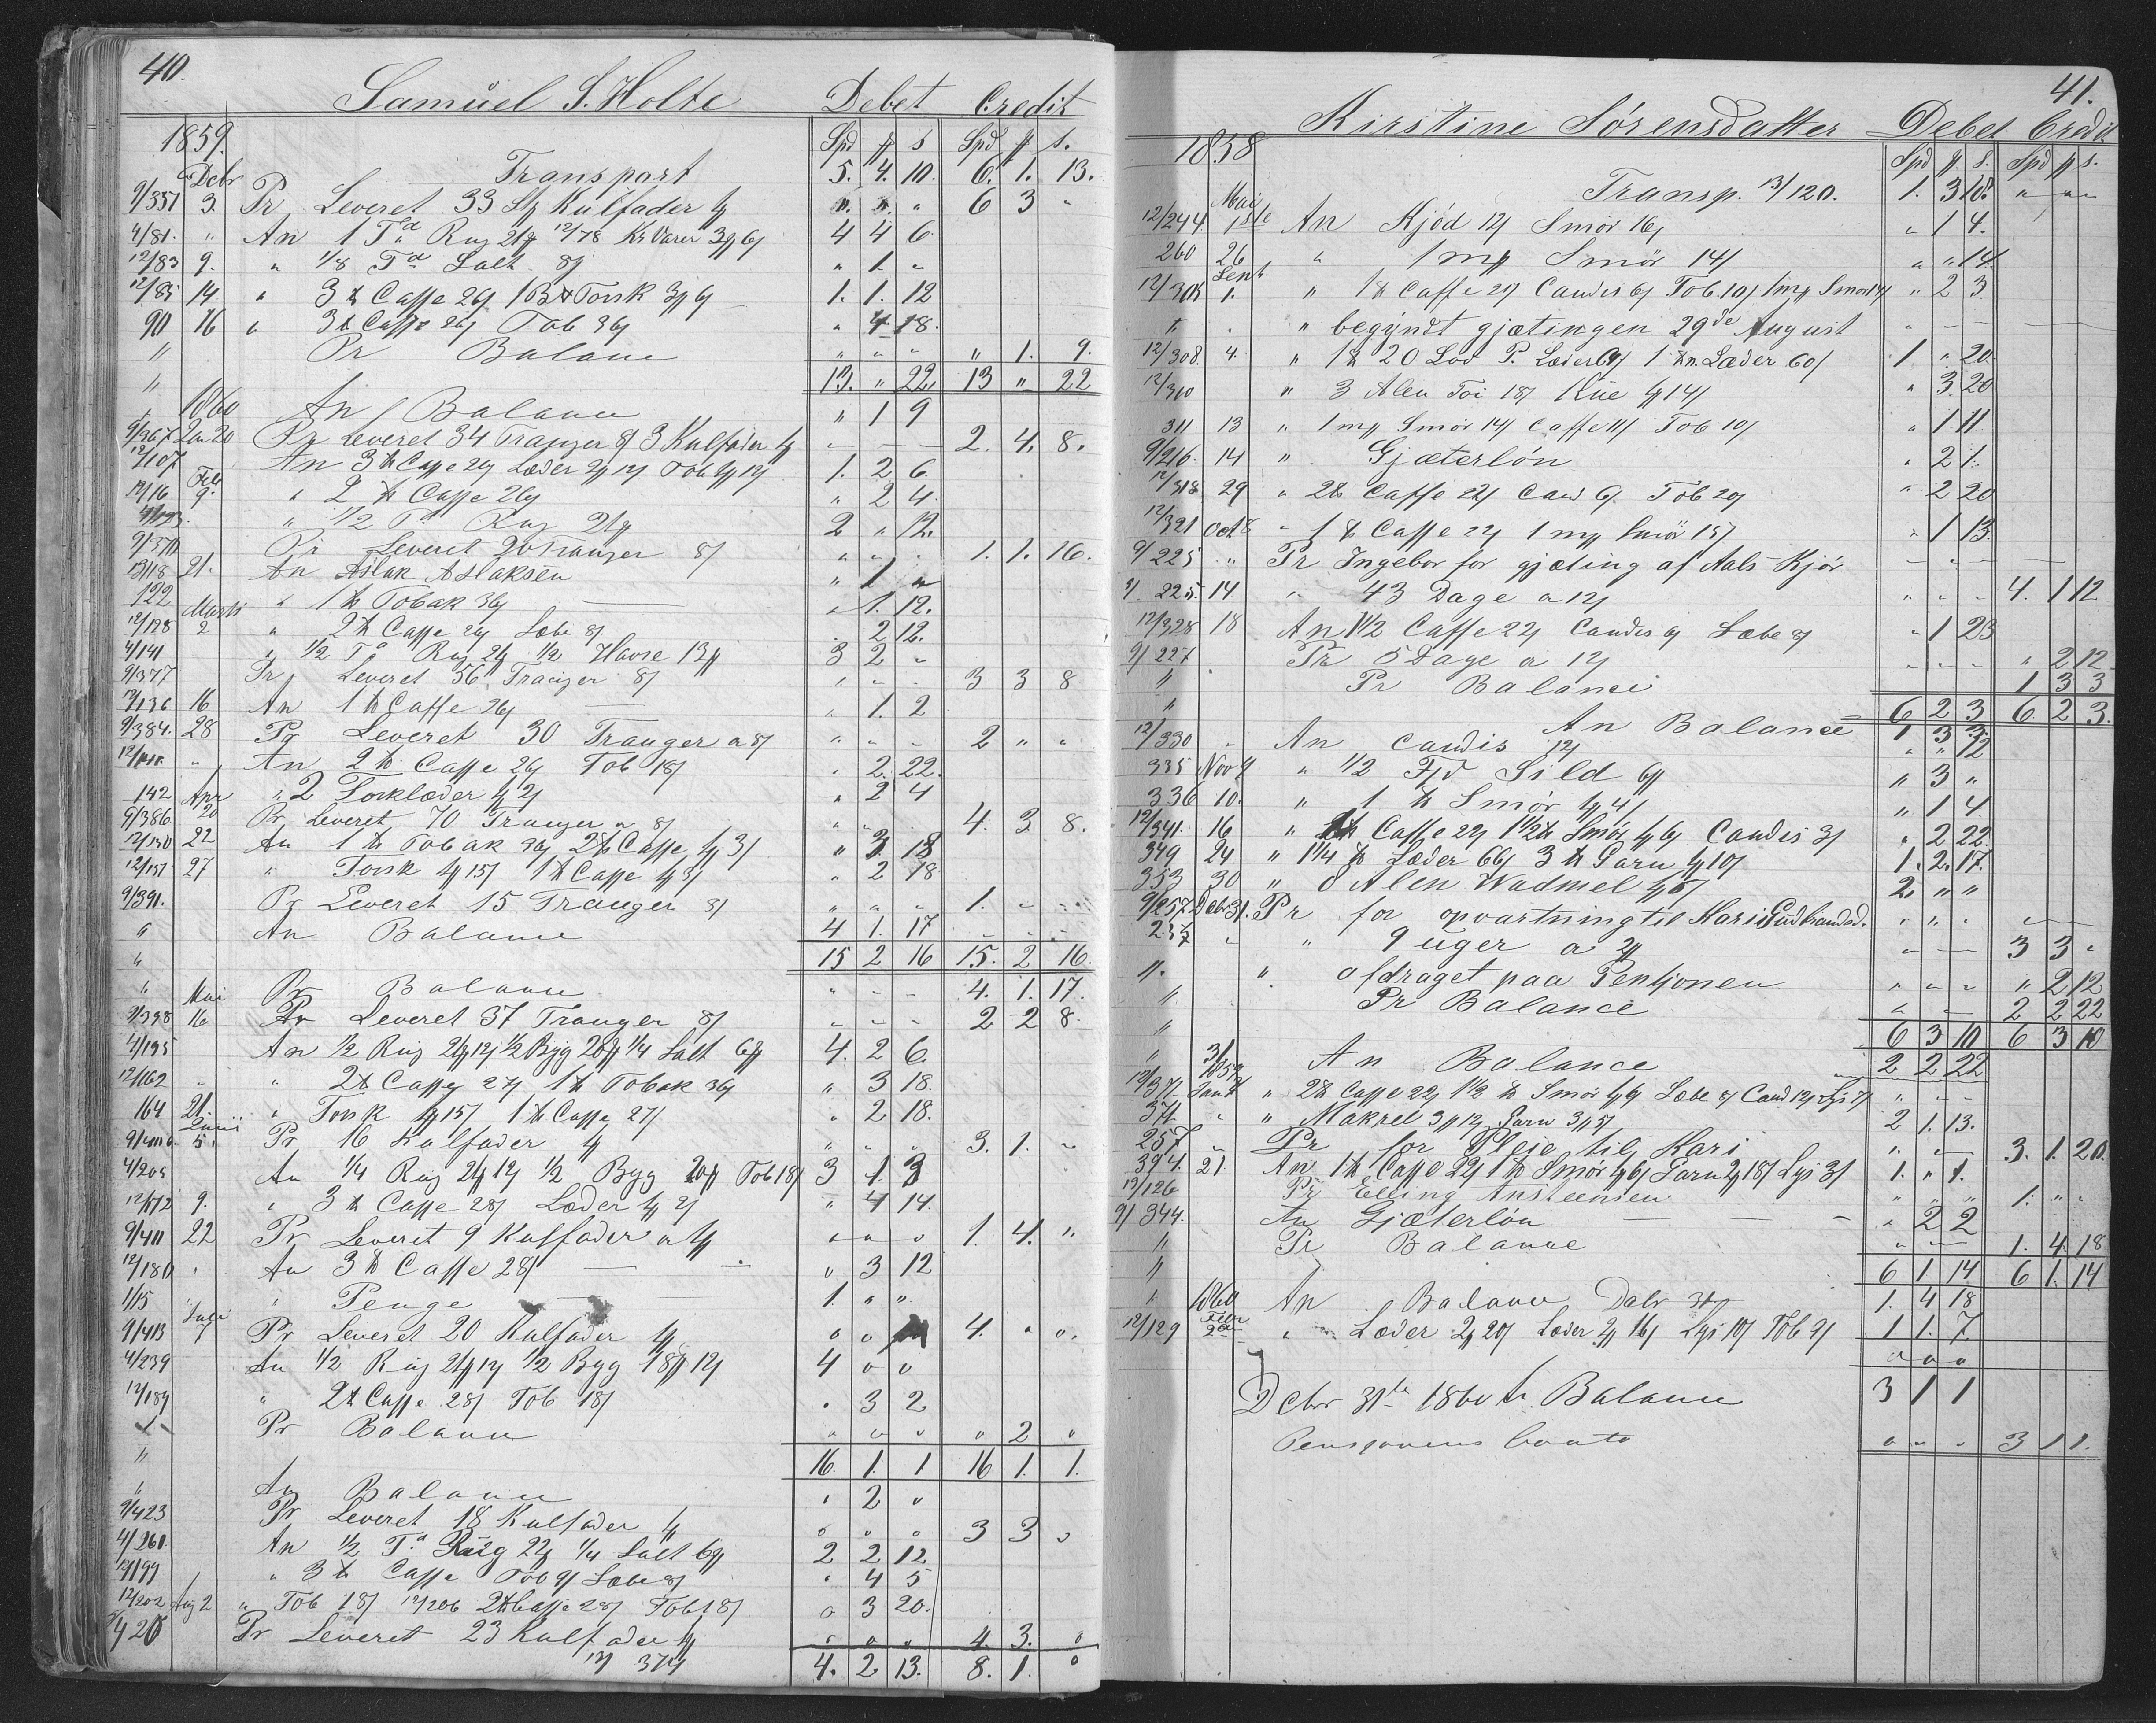 40.
Samuel S. Holte Debet Credit
1859. Spd ƒ s Spd ƒ s.
Debr Transport 5. 4. 10. 6. 1. 13.
9/351 3. Pr Leveret 33 Stz Kulfader 1ƒ " " " 6 3 "
4/81. " An 1 Td Rug 21ƒ 12/78 Kr Varer 3ƒ 6ſ 4 4 6
12/83 9. " 1/8 Td Salt 8ſ " 1. "
12/85 14 " 3 ℔ Caffe 26ſ 1 B℔ Torsk 3ƒ 6ſ 1. 1. 12
90 16 " 3℔ Caffe 26ſ Tob 36ſ " 4 18.
" Pr Balance " " " " 1. 9.
" 13. " 22. 13 " 22
1860 An Balance " 1 9
9/367 Jan 20 Pr Leveret 34 Tranger 8ſ 3 Kulfader 1ƒ " — — 2. 4. 8.
12/107 An 3℔ Caffe 26ſ Læder 2ƒ 12ſ Tob 1ƒ 12ſ 1. 2 6
12/16 Feb 9. " 2 ℔ Caffe 26ſ " 2 4.
" 1/2 Td Rug 21ƒ 2 " 12.
9/370 Pr Leveret 20 Tranger 8ſ " " " 1. 1. 16.
12/18 21. An Aslak Aslaksen " 1 "
122 " 1 ℔ Tobak 36ſ " 1. 12.
12/128 Marts 2 " 2℔ Caffe 26ſ Læbe 8ſ . 2 12.
4/141 " 1/2 Td Rug 21ƒ 1/2 Havre 13ƒ 3 2 "
9/377 Pr Leveret 56 Tranger 8ſ " " " 3 3 8
12/136 16 An 1 ℔ Caffe 26ſ " 1. 2
9/384. 28 Pr Leveret 30 Tranger a 8ſ " " " 2 " "
" An 2 ℔ Caffe 26ſ Tob 18ſ " 2. 22.
142 Apr " 2 Forklæder 1ƒ 2ſ " 2 4
9/386 20 Pr Leveret 70 Tranger a 8ſ " " " 4. 3 8.
12/150 22 An 1 ℔ Tobak 36ſ 2℔ Caffe 1ƒ 3ſ " 3. 18
12/151 27 " Torsk 1ƒ 15ſ 1℔ Caffe 1ƒ 3ſ " 2 18
9/391. Pr Leveret 15 Tranger 8ſ " " " 1. " "
" An Balance 4 1. 17
" 15 2 16 15. 2 16.
" Mai Pr Balance " - - 4. 1. 17.
9/398 16 Pr Leveret 37 Tranger 8ſ " " " 2 2 8.
4/195 An 1/2 Rug 21ƒ 12ſ 1/2 Byg 20ƒ 1/4 Salt 6ƒ 4. 2 6.
12/162 " " 2℔ Caffe 27ſ 1℔ Tobak 36ſ " 3 18.
164 21. " Torsk 1ƒ 15ſ 1℔ Caffe 27ſ " 2 18.
Juni 5. Pr 16 Kulfader 1ƒ " " " 3. 1. "
4/205 An 1/4 Rug 21ƒ 12ſ 1/2 Byg 20ƒ Tob 18ſ 3 1. 3
12/172 9. " 3 ℔ Caffe 28ſ Læder 1ƒ 2ſ " 4 14.
9/411 22 Pr Leveret 9 Kulfader a 1ƒ " " " 1. 4. "
12/180 " An 3 ℔ Caffe 28ſ " 3 12
1/15 " " Penge 1. " "
9/413 Juli 7 Pr Leveret 20 Kulfader 1ƒ " " 4. " ".
4/239 An 1/2 Rug 21ƒ 12ſ 1/2 Byg 18ƒ 12ſ 4 " "
12/189 " 2℔ Caffe 28ſ Tob 18ſ . 3 2
Pr Balance " " " " 2 "
" 16. 1. 1 16 1. 1.
" An Balance " 2 "
9/423 Pr Leveret 18 Kulfader 1ƒ " " " 3 3 "
4/260. An 1/2 Td Rug 22ƒ 1/4 Salt 6ƒ 2 2 12
12/199 " 3 ℔ Caffe Tob 9ſ Læbe 8ſ " 4 5
12/202 Aug 2 " Tob 18ſ 12/206 2℔ Caffe 28ſ Tob 18ſ " 3 20.
Pr Leveret 23 Kulfader 1ƒ " " " 4. 3. "
4. 2 13. 8. 1. "
41.
Kirstine Sørensdatter Debet Credit
1858 Spd ƒ s. Spd ƒ s.
Transp. 13/120. 1. 3 18. " " "
12/244 Mai 1ste An Kjød 12ſ Smør 16ſ " 1 4.
260 26 " 1 mƒ Smør 14ſ " " 14.
12/305 Sept 1. " 1℔ Caffe 22ſ Candis 6ſ Tob 10ſ 1mƒ Smør 14ſ " 2 3.
" . " begyndt gjætingen 29de August
12/308. 4. " 1℔ 20 Lod P. Læder 1 ℔ n. Læder 60ſ 1 " 20.
12/310 " 3 Alen Toi 18ſ Kue 1ƒ 14ſ " 3. 20
311 13 " 1 mƒ Smør 14ſ Caffe 11ſ Tob 10ſ " 1 11
9/216. 14 " Gjæterløn " 2 1.
12/318 29 " 2℔ Caffe 22ſ Cand 6ſ. Tob 20ſ " 2 20
12/321 Oct 8 " 1 ℔ Caffe 22ſ 1 mƒ Smør 15ſ " 1 13.
9/225 " Pr Ingebor for gjæting af Aals-Kjør
9/ 225. 14 " 43 Dage a 12ſ " " " 4. 1 12
12/328 18 An 1 1/2 Caffe 22ſ Candis 6ſ Læbe 8ſ " 1 23
9/227 Pr 5 Dage a 12ſ " " " " 2 12
" Pr Balance 1 3 3
" 6 2 3 6 2 3.
An Balance 1 3 3
12/330 " An Candis 12ſ " " 12
335 Nov 9 " 1/2 Fjd Sild 6ƒ " 3 "
336 10. " 1 ℔ Smør 1ƒ 4ſ " 1 4
12/341. 16 " 1℔ Caffe 22ſ 1 1/2℔ Smør 1ƒ 6ſ Candis 3ſ " 2 22.
349 24 " 1 1/4 ℔ Læder 66ſ 3 ℔ Garn 1ƒ 10ſ 1. 2. 17.
353 30 " 8 Alen Wadmel 1ƒ 6ſ 2. " "
9/257 Debr 31. Pr for opvartning til Kari Gudbrandsd. " " "
257 " " 9 uger a 2ƒ " — 3 3 "
". " afdraget paa Pentjonen " " " " 2 12
" Pr Balance " — 2 2 22
" 6 3 10 6 3 10
" 31/1859 An Balance 2 2 22
12/371 Jan 4 " 2℔ Caffe 22ſ 1 1/2 ℔ Smør 1ƒ 6ſ Læbe 8ſ Cand 12ſ Lys 7ſ
374. " " Makrel 3ƒ 12ſ Garn 3ƒ 15ſ 2 1. 13.
257 " Pr for Pleie til Kari " — 3. 1. 20.
394. 21. An 1℔ Caffe 22ſ 1℔ Smør 1ƒ 6ſ Garn 2ƒ 18ſ Lys 3ſ 1. " 1.
12/126 Pr Elling Ansteensen " " " 1. " "
9/344. An Gjæterløn " 2 2
" Pr Balance " — 1. 4. 18
" 6 1. 14 6 1. 14
" 1860 An Balance Debr 31 1. 4 18
12/129 Febr 22 " Læder 2ƒ 20ſ Læder 2ƒ 16ſ Lys 10ſ Tob 9ſ 1 1. 7
" " "
Debr 31te 1860 An Balance 3 1 1
Pensjonens Conto " " " 3 1 1.